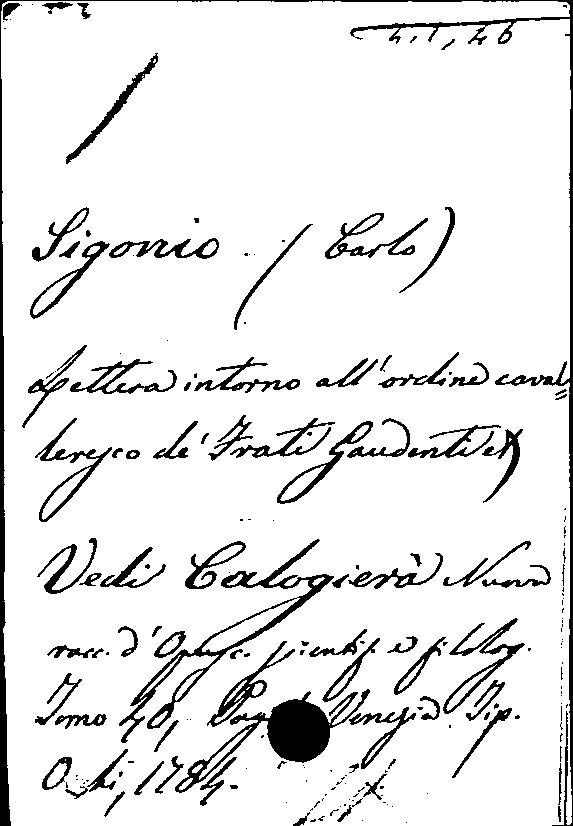 4.1, 46
Sigonio (Carlo)
Lettera intorno all'ordine caval=
leresco de' Frati Gaudenti
Vedi Calogierà Nuova
racc. d'Opusc. scientif. e filolog.
Tomo 40, Venezia Tip.
1784.